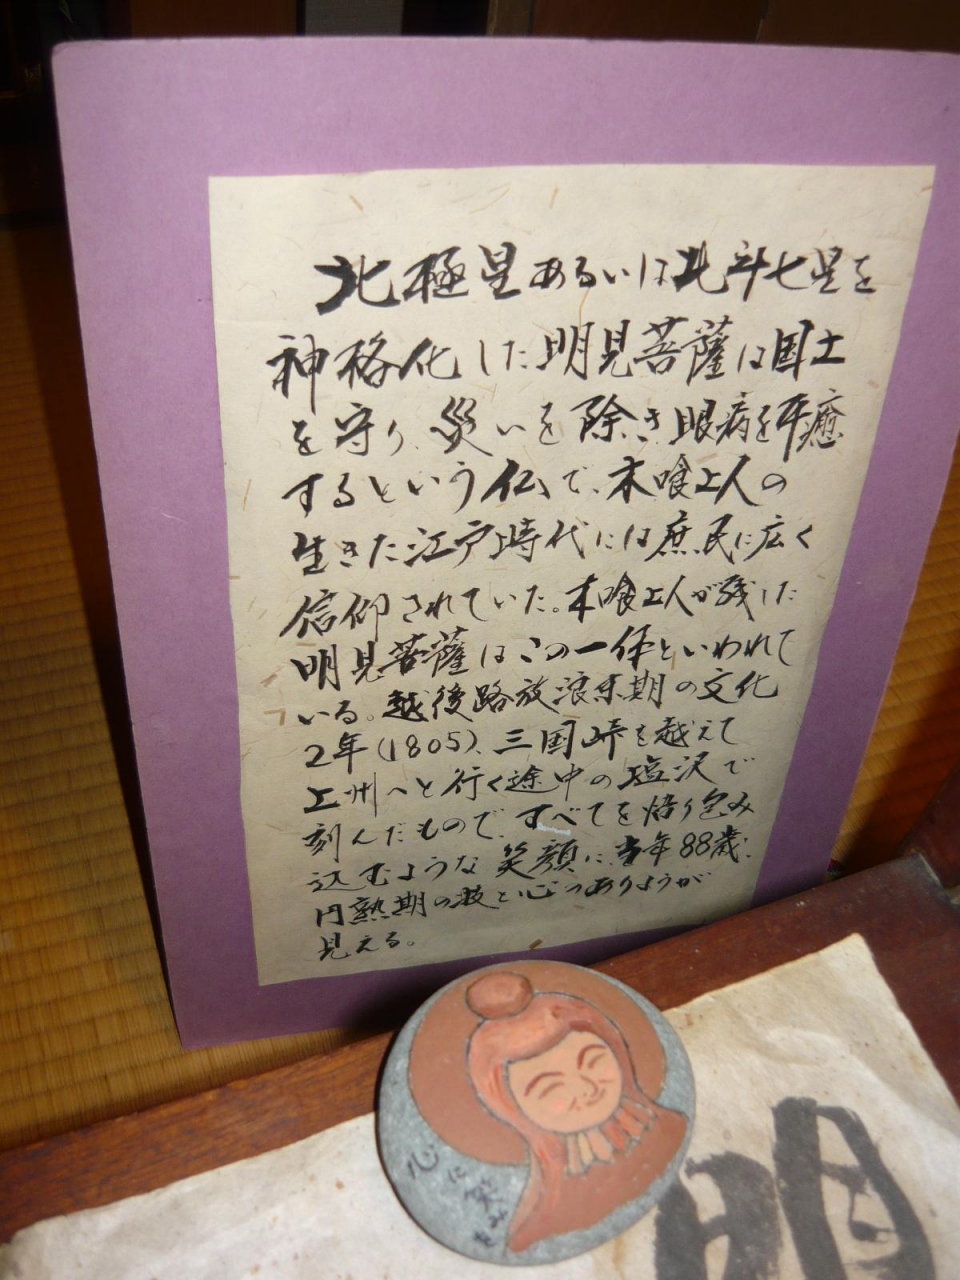 北極星あるいは北斗七星を
神格化した明見菩薩は国土
を守り、災いを除き眼病を平癒
するという仏で、木喰上人の
生きた江戸時代には庶民に広く
信仰されていた。木喰上人が残した
明見菩薩はこの一体といわれて
いる。越後路放浪末期の文化
2年(1805)、三国峠を越えて
上州へと行く途中の塩沢で
刻んだもので、すべてを悟り包み
込むような笑顔に、当年88歳、
円熟期の技と心のありようが
見える。
心に
笑みを
明